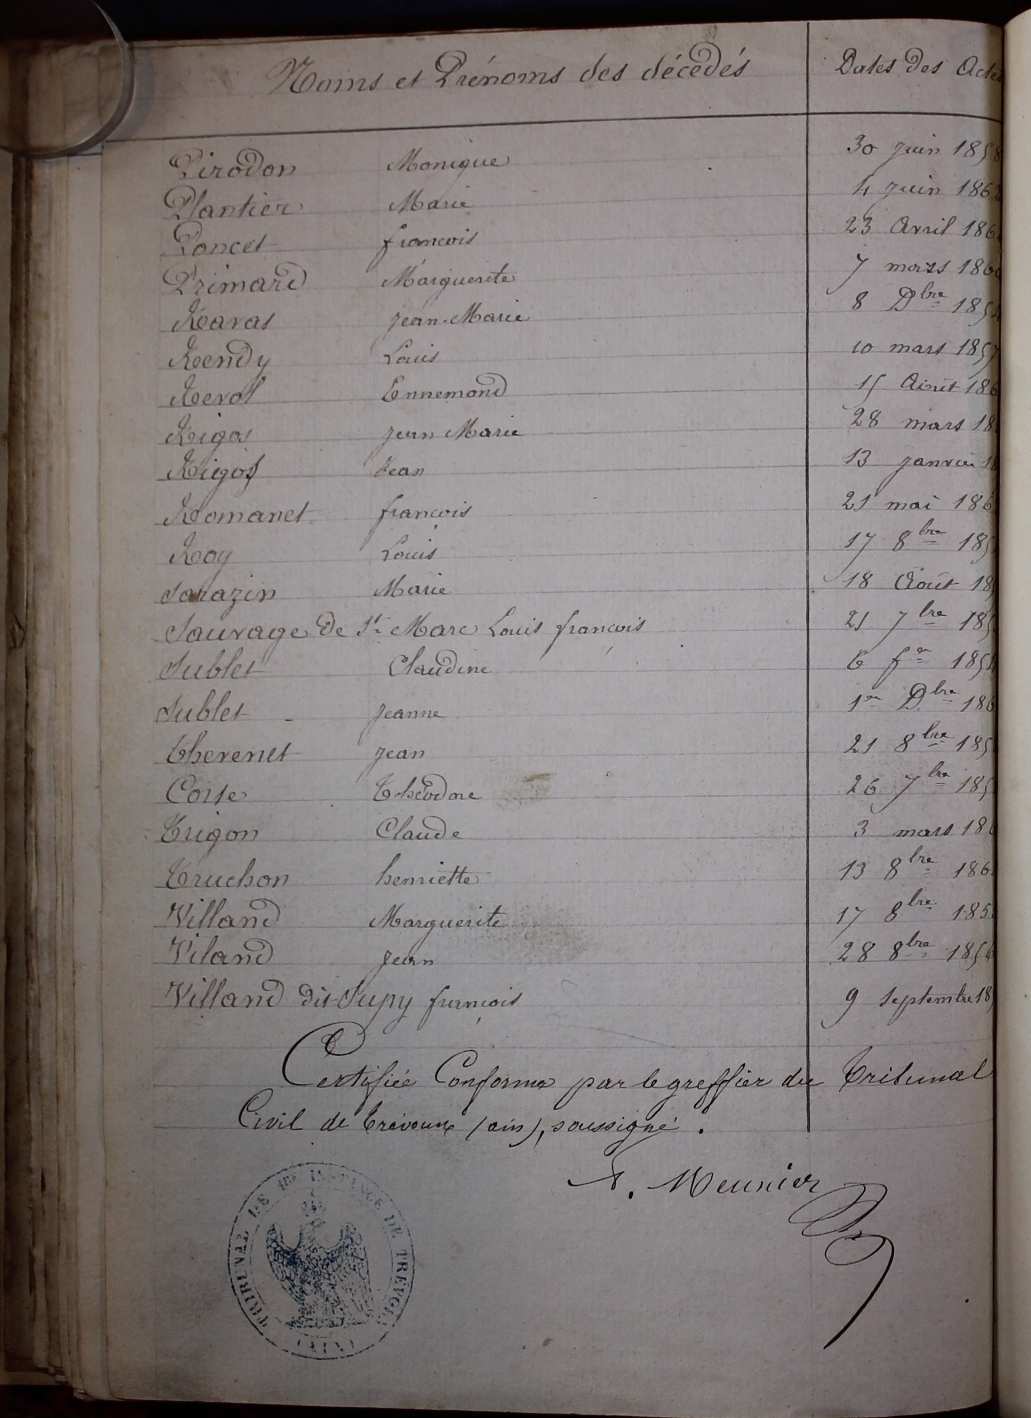 Noms et Prénoms des décédés Dates des Actes
Pirodon Monique 30 juin 1858
Plantier Marie 4 juin 186
Poncet françois 23 Avril 186
Primard Marguerite 7 mars 186
Ravas Jean-Marie 8 Dbre 185
Rendy Louis 10 mars 1857
Revol Ennemond 15 Août 186
Rigot Jean Marie 28 mars 18
Rigot Jean 13 janvier 1
Romanet françois 21 mai 186
Roy Louis 17 8bre 185
Sarazin Marie 18 Août 18
Sauvage de St Marc Louis françois 21 7bre 185
Sublet Claudine 6 fer 185
Sublet Jeanne 1er Dbre 186
Thevenet Jean 21 8bre 185
Théodore 26 7bre 185
Trigon Claude 3 mars 186
Truchon henriette 13 8bre 186
Villand Marguerite 17 8bre 185
Viland Jean 28 8bre 185
Villand dit Supy françois 9 septembre 18
Certifiée Conforme par le greffier du Tribunal
Civil de Trévoux (ain), soussigné.
Meunier
TRIBUNAL DE 1RE INSTANCE DE TRÉVOUX
(AIN)